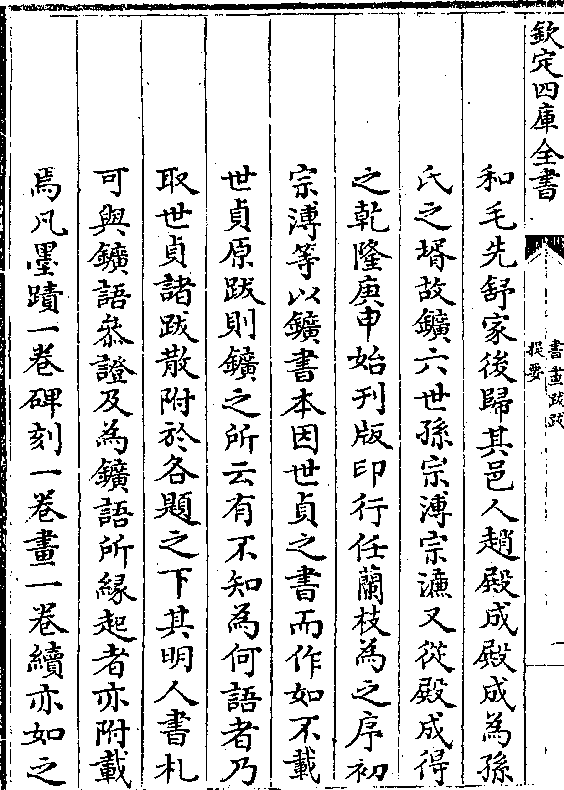 欽定四庫全書
書畫跋跋
提要
一
和毛先舒家後歸其邑人趙殿成殿成為孫
氏之壻故鑛六世孫宗溥宗濂又從殿成得
之乾隆庚申始刊版印行任蘭枝為之序初
宗溥等以鑛書本因世貞之書而作如不載
世貞原跋則鑛之所云有不知為何語者乃
取世貞諸跋散附於各題之下其明人書札
可與鑛語叅證及為鑛語所緣起者亦附載
焉凡墨蹟一卷碑刻一卷畫一卷續亦如之